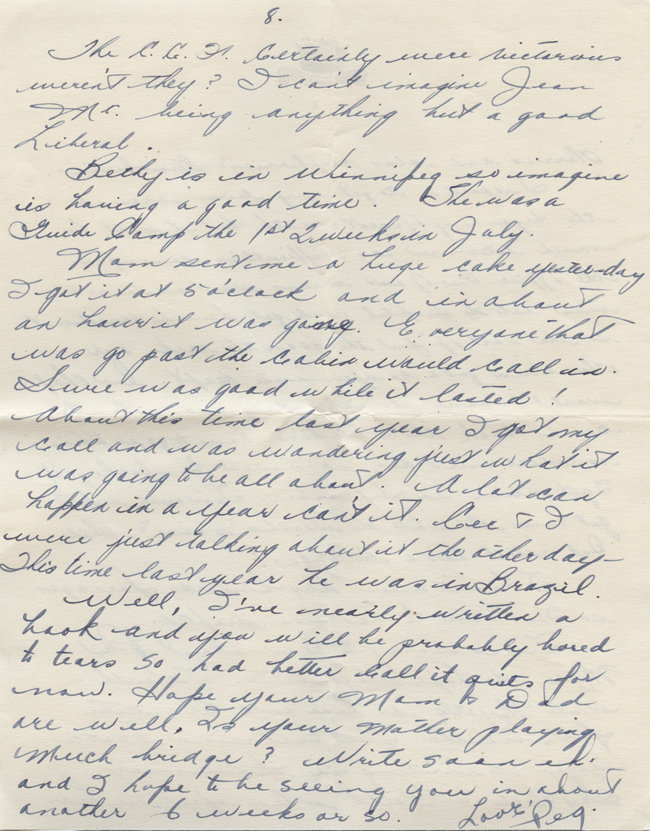 8.
The C.C.F. Certainly were victorious
weren't they? I can't imagine Jean
Mc. being anything but a good
Liberal.
Betty is in Winnipeg so imagine
is having a good time. She was a
Guide Camp the 1st 2 weeks in July.
Mom sent me a huge cake yester-day
I got it at 5 o'clock and in about
an hour it was gone. Everyone that
was go past the Cabin would call in.
Sure was good while it lasted!
About this time last year I got my
Call and was wondering just what it
was going to be all about. A lot can
happen in a year can't it. Cec & I
were just talking about it the other day-
This time last year he was in Brazil.
Well, I've nearly written a
book and you will be probably bored
to tears so had better call it quits for
now. Hope your Mom & Dad
are well. Is your Mother playing
much bridge? Write soon eh.
and I hope to be seeing you in about
another 6 weeks or so. Love Peg.